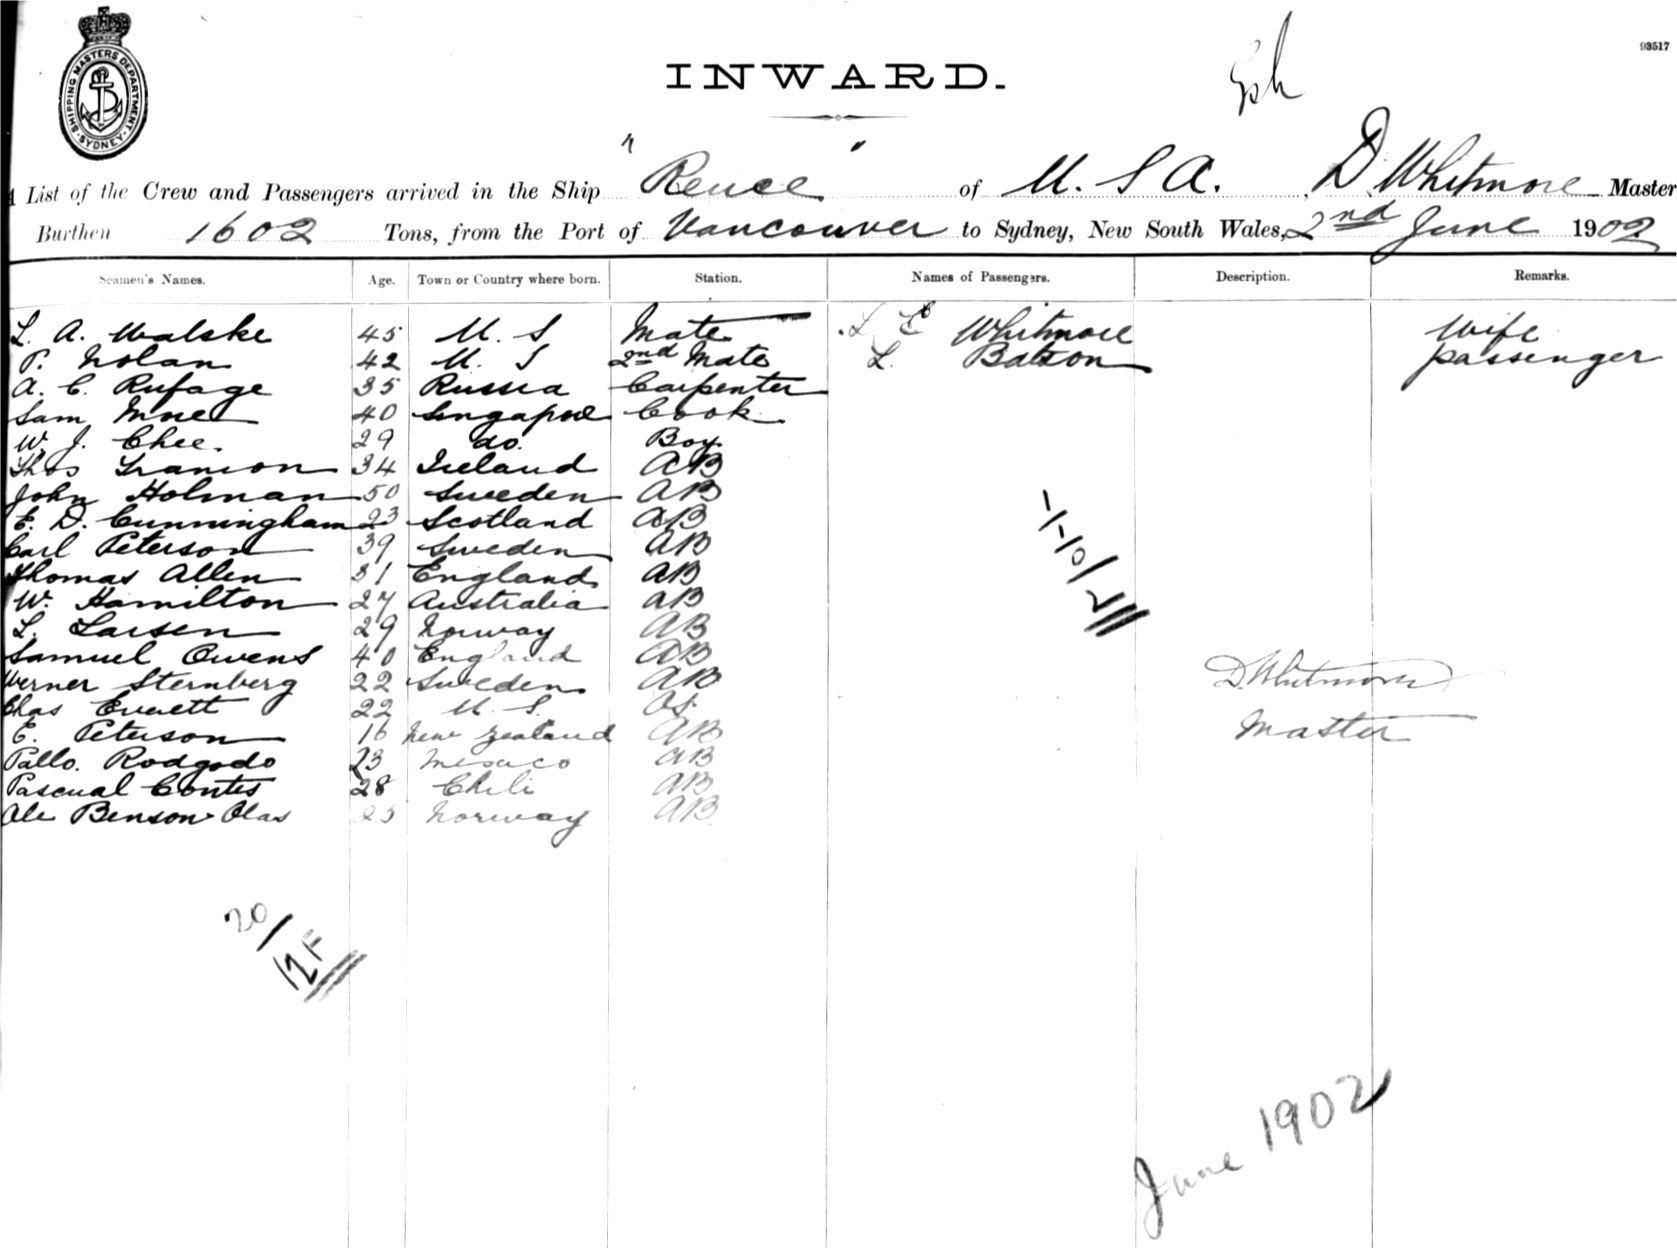 93517
SHIPPING MASTERS DEPARTMENT. SYDNEY
INWARD.
A List of the Crew and Passengers arrived in the Ship "Rence" of U. S A., D Whitmore Master
Burthen 1602 Tons, from the Port of Vancouver to Sydney, New South Wales, 2nd June 1902
Seamen's Names. Age. Town or Country where born. Station. Names of Passengers. Description. Remarks.
L. A. Walske 45 U. S Mate L E Whitmore Wife
P. Nolan 42 U. S 2nd Mate L. Batson passenger
A. C. Rufage 35 Russia Carpenter
Sam 40 Singapore Cook
W. J. Chee. 29 do. Boy
Thos 34 Ireland AB
John Holman 50 Sweden AB
E. D. Cunningham 23 Scotland AB
Carl Peterson 39 Sweden AB
Thomas Allen 31 England AB
W. Hamilton 27 Australia AB
L. Larsen 29 Norway AB
Samuel Owens 40 England AB
Werner Sternberg 22 Sweden AB
Chas Everett 22 U. S. OS.
E. Peterson 16 New Zealand AB
Pallo. Rodgodo 23 AB
Pascual Contes 28 Chili AB
Ole Benson Olas 23 Norway AB
D. Whitmore
Master
20/
12F
June 1902